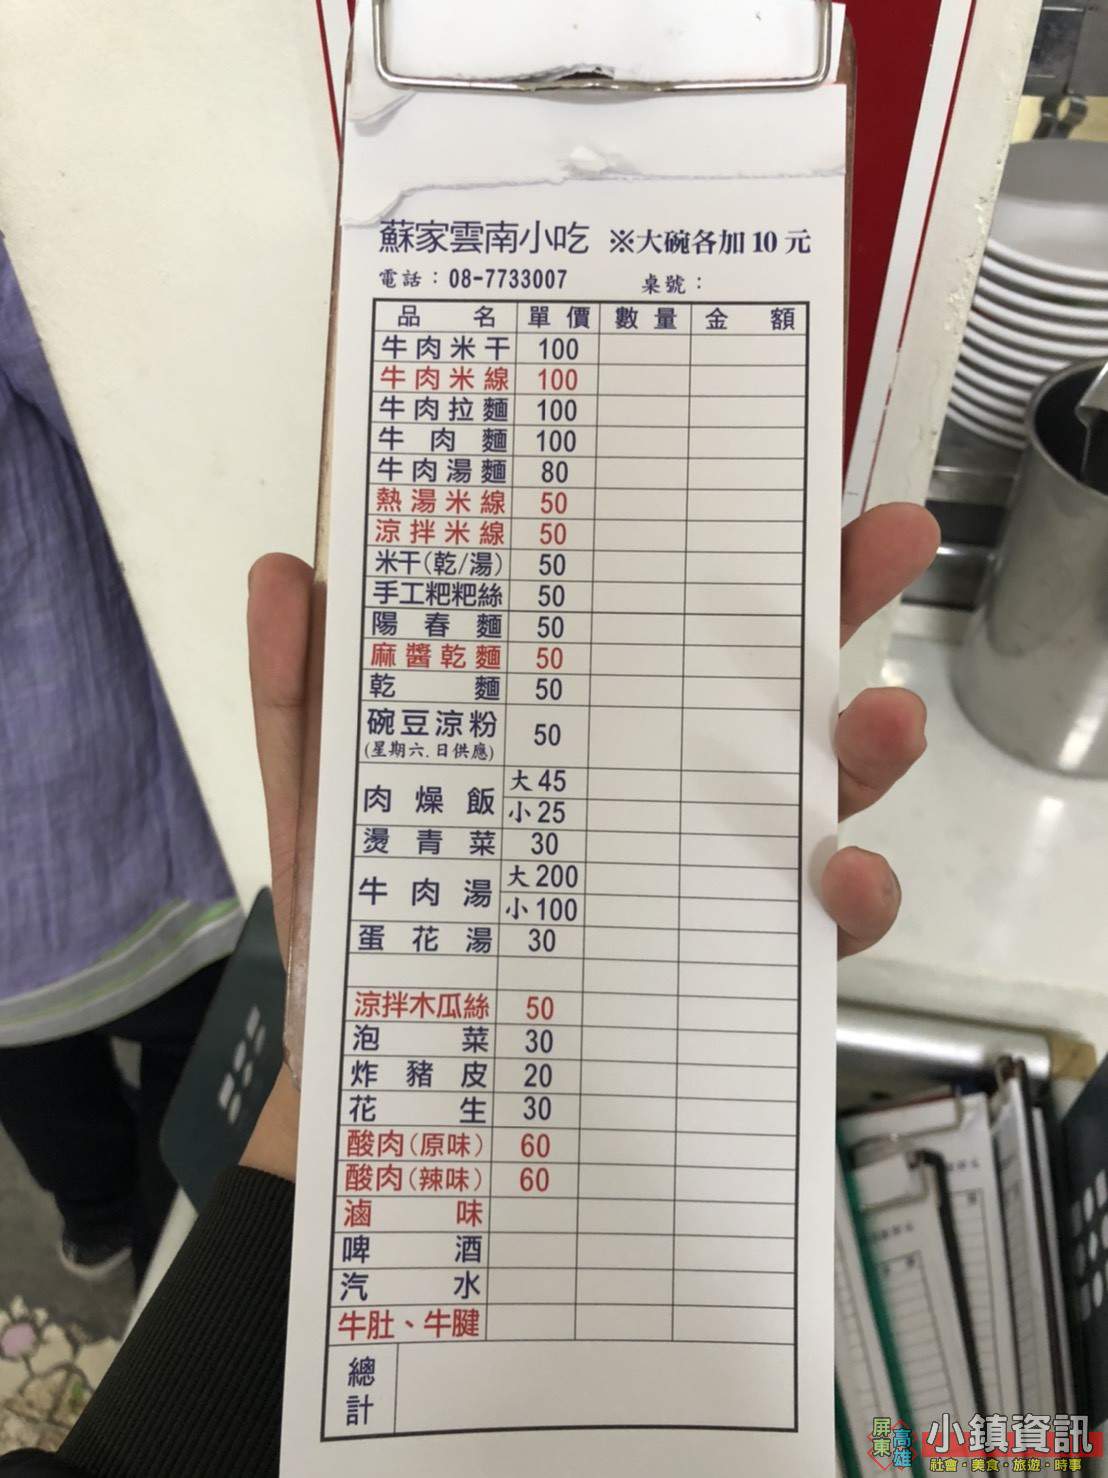 蘇家雲南小吃 ※大碗各加10元
電話：08-7733007 桌號：
品名 單價 數量 金額
牛肉米干 100
牛肉米線 100
牛肉拉麵 100
牛肉麵 100
牛肉湯麵 80
熱湯米線 50
涼拌米線 50
米干(乾/湯) 50
手工粑粑絲 50
陽春麵 50
麻醬乾麵 50
乾麵 50
碗豆涼粉 50
(星期六.日供應)
肉燥飯 大45
小25
燙青菜 30
牛肉湯 大200
小100
蛋花湯 30
涼拌木瓜絲 50
泡菜 30
炸豬皮 20
花生 30
酸肉(原味) 60
酸肉(辣味) 60
滷味
啤酒
汽水
牛肚、牛腱
總計
屏東 高雄 小鎮資訊
社會·美食·旅遊·時事